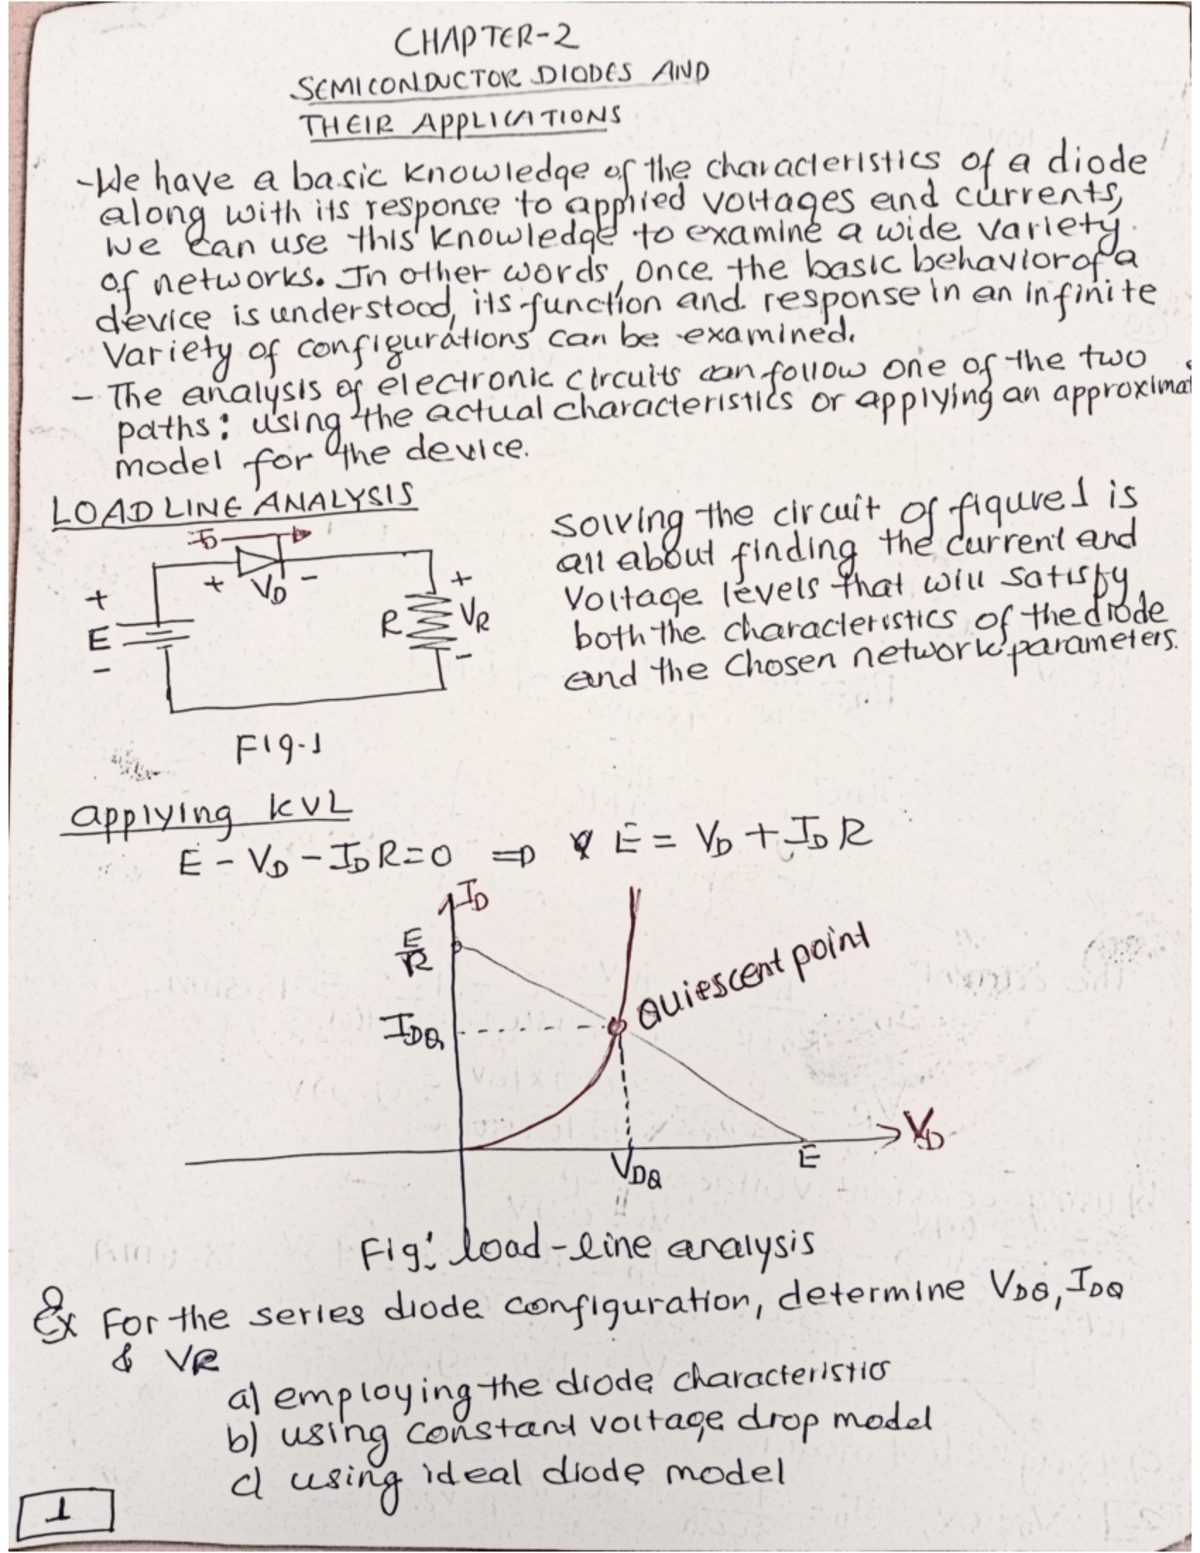 CHAPTER-2
SEMICONDUCTOR DIODES AND
THEIR APPLICATIONS
-We have a basic knowledge of the characteristics of a diode
along with its response to applied voltages and currents,
we can use this knowledge to examine a wide variety
of networks. In other words, once the basic behavior of a
device is understood, its function and response in an infinite
variety of configurations can be examined.
- The analysis of electronic circuits can follow one of the two
paths: using the actual characteristics or applying an approximat
model for the device.
LOAD LINE ANALYSIS
ID
+ VD -
+
E
-
R
+
VR
-
Fig-1
Solving the circuit of figure 1 is
all about finding the current and
voltage levels that will satisfy
both the characteristics of the diode
and the chosen network parameters.
applying KVL
E - VD - IDR=0 ⇒ E = VD + IDR
ID
E/R
IDQ
Quiescent point
VDQ
E
VD
Fig: load-line analysis
Ex For the series diode configuration, determine VDQ, IDQ
& VR
a) employing the diode characteristic
b) using constant voltage drop model
c) using ideal diode model
1